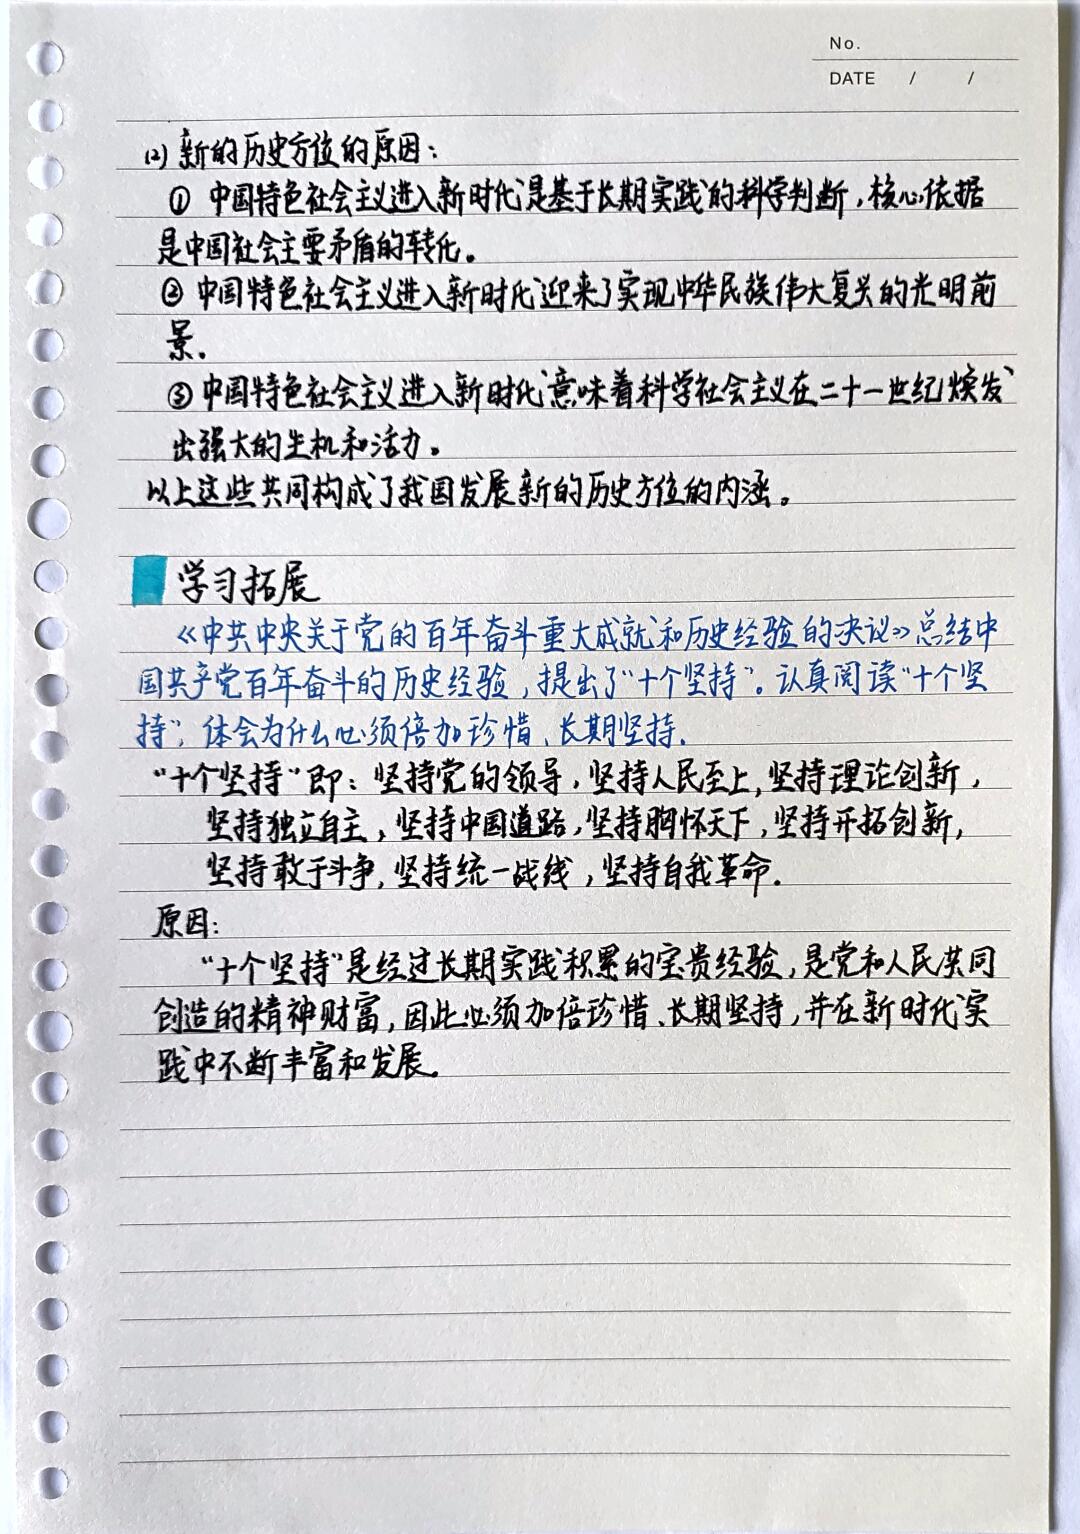 No.
DATE / /
(2) 新的历史方位的原因：
① 中国特色社会主义进入新时代是基于长期实践的科学判断，核心依据
是中国社会主要矛盾的转化。
② 中国特色社会主义进入新时代迎来了实现中华民族伟大复兴的光明前
景。
③ 中国特色社会主义进入新时代意味着科学社会主义在二十一世纪焕发
出强大的生机和活力。
以上这些共同构成了我国发展新的历史方位的内涵。
学习拓展
《中共中央关于党的百年奋斗重大成就和历史经验的决议》总结中
国共产党百年奋斗的历史经验，提出了“十个坚持”。认真阅读“十个坚
持”，体会为什么必须倍加珍惜、长期坚持.
“十个坚持”即：坚持党的领导，坚持人民至上，坚持理论创新，
坚持独立自主，坚持中国道路，坚持胸怀天下，坚持开拓创新，
坚持敢于斗争，坚持统一战线，坚持自我革命.
原因：
“十个坚持”是经过长期实践积累的宝贵经验，是党和人民共同
创造的精神财富，因此必须加倍珍惜、长期坚持，并在新时代实
践中不断丰富和发展。